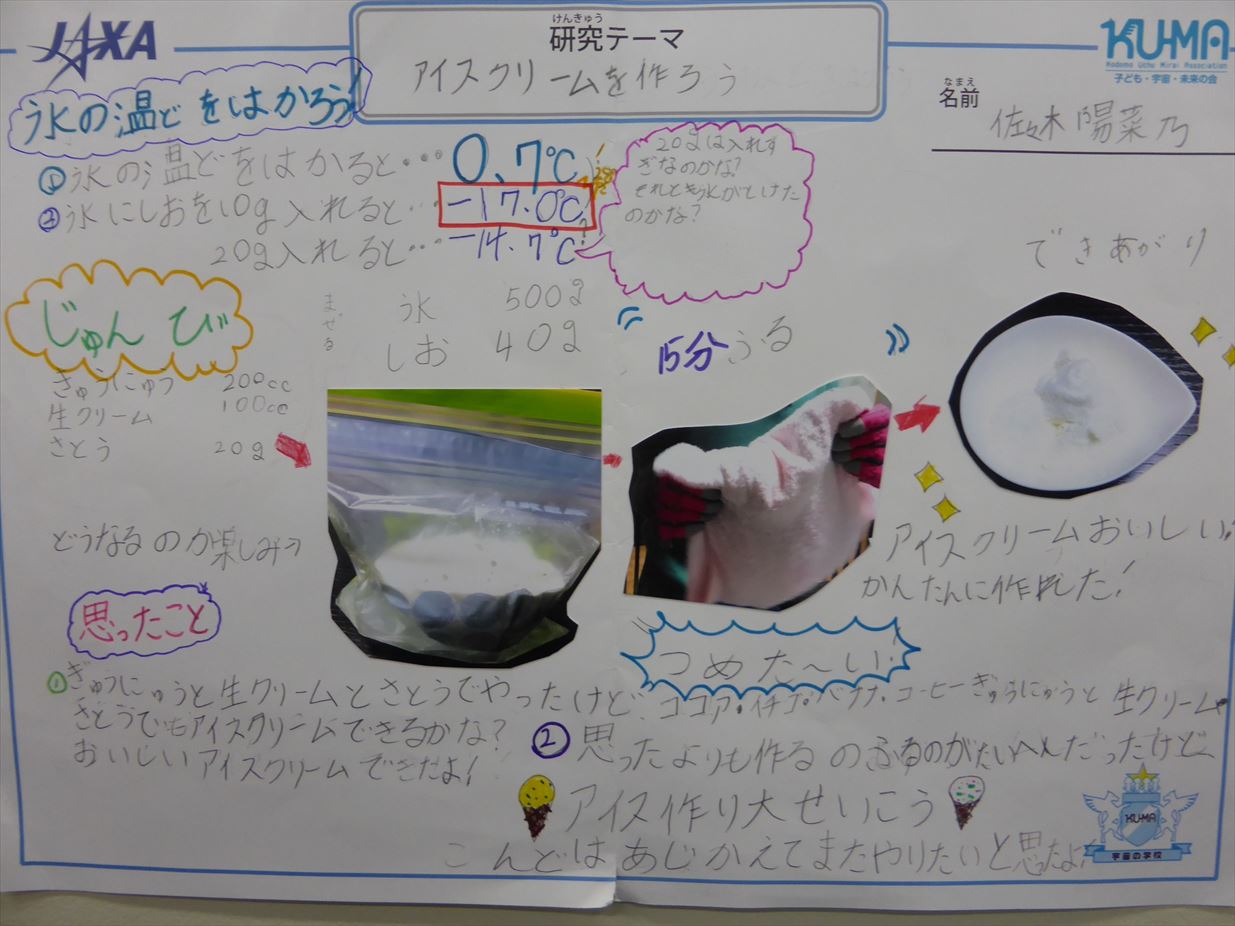 JAXA
けんきゅう
研究テーマ
アイスクリームを作ろう
KU-MA
Kodomo Uchu Mirai Association
子ども・宇宙・未来の会
なまえ
名前
佐々木 陽菜乃
氷の温どをはかろう!
①氷の温どをはかると・・・ 0.7℃
②氷にしおを10g入れると・・・ -17.0℃
20g入れると・・・ -14.7℃
20gは入れす
ぎなのかな?
それとも氷がとけた
のかな?
じゅんび
ぎゅうにゅう 200cc
生クリーム 100cc
さとう 20g
まぜる
氷 500g
しお 40g
15分 ふる
できあがり
どうなるのか楽しみ♪
アイスクリームおいしい!
かんたんに作れた!
つめた〜い!
思ったこと
①ぎゅうにゅうと生クリームとさとうでやったけど、ココア・イチゴ・バナナ・コーヒーぎゅうにゅうと生クリームや
さとうでもアイスクリームできるかな?
おいしいアイスクリームできたよ!
②思ったよりも作るのふるのがたいへんだったけど、
アイス作り大せいこう
こんどはあじかえてまたやりたいと思ったよ?
KU-MA
宇宙の学校